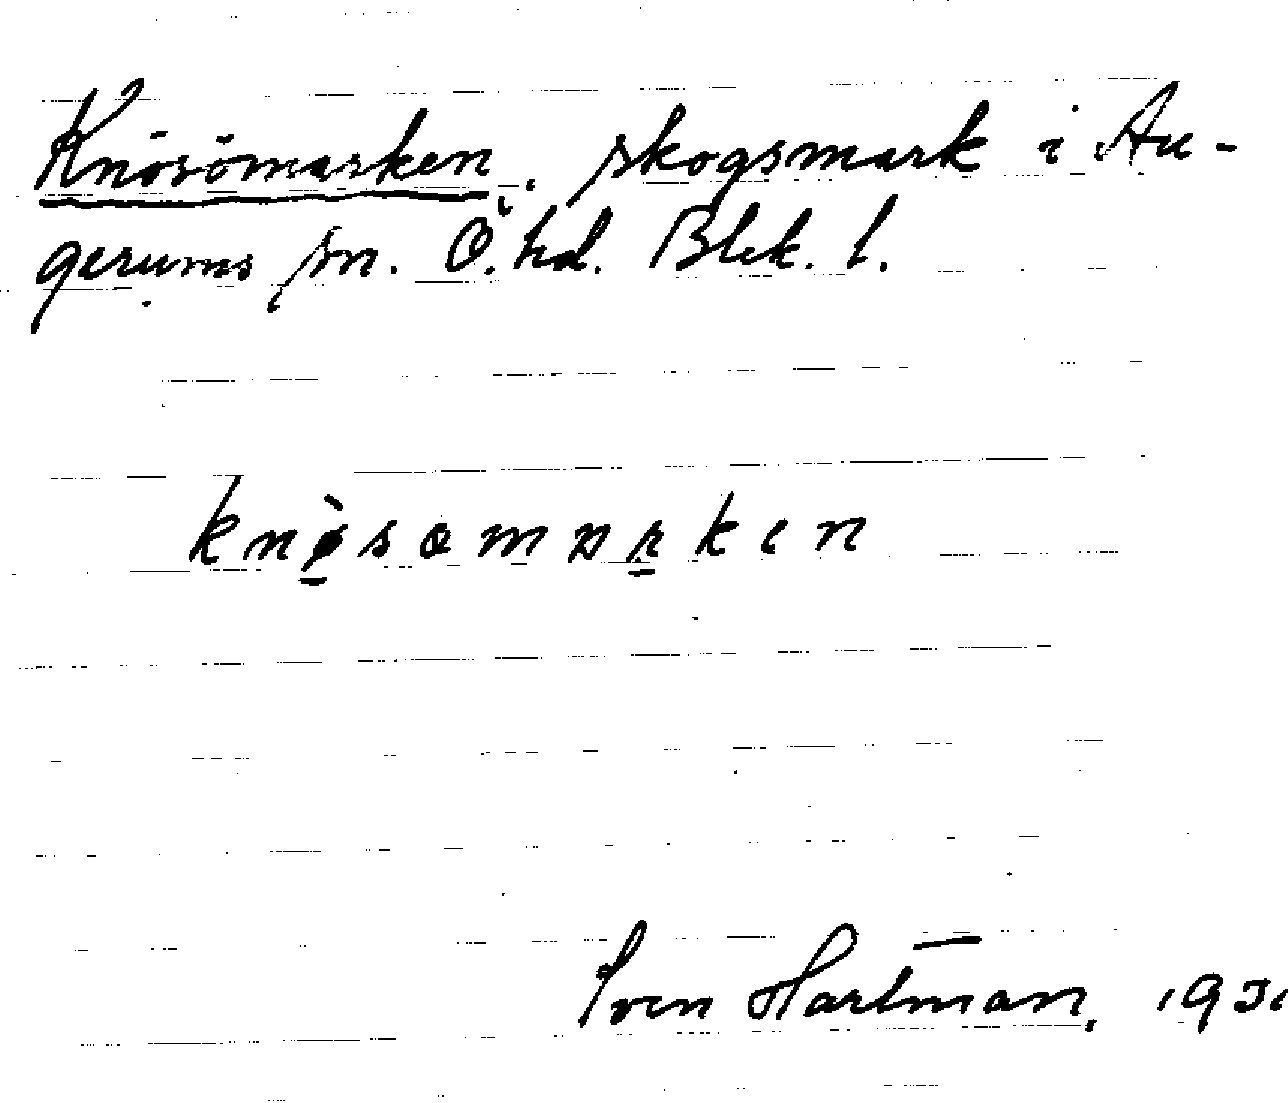 Knösömarken, skogsmark i Au-
gerums sn. Ö. hd. Blek. l.
Sven Hartman, 193